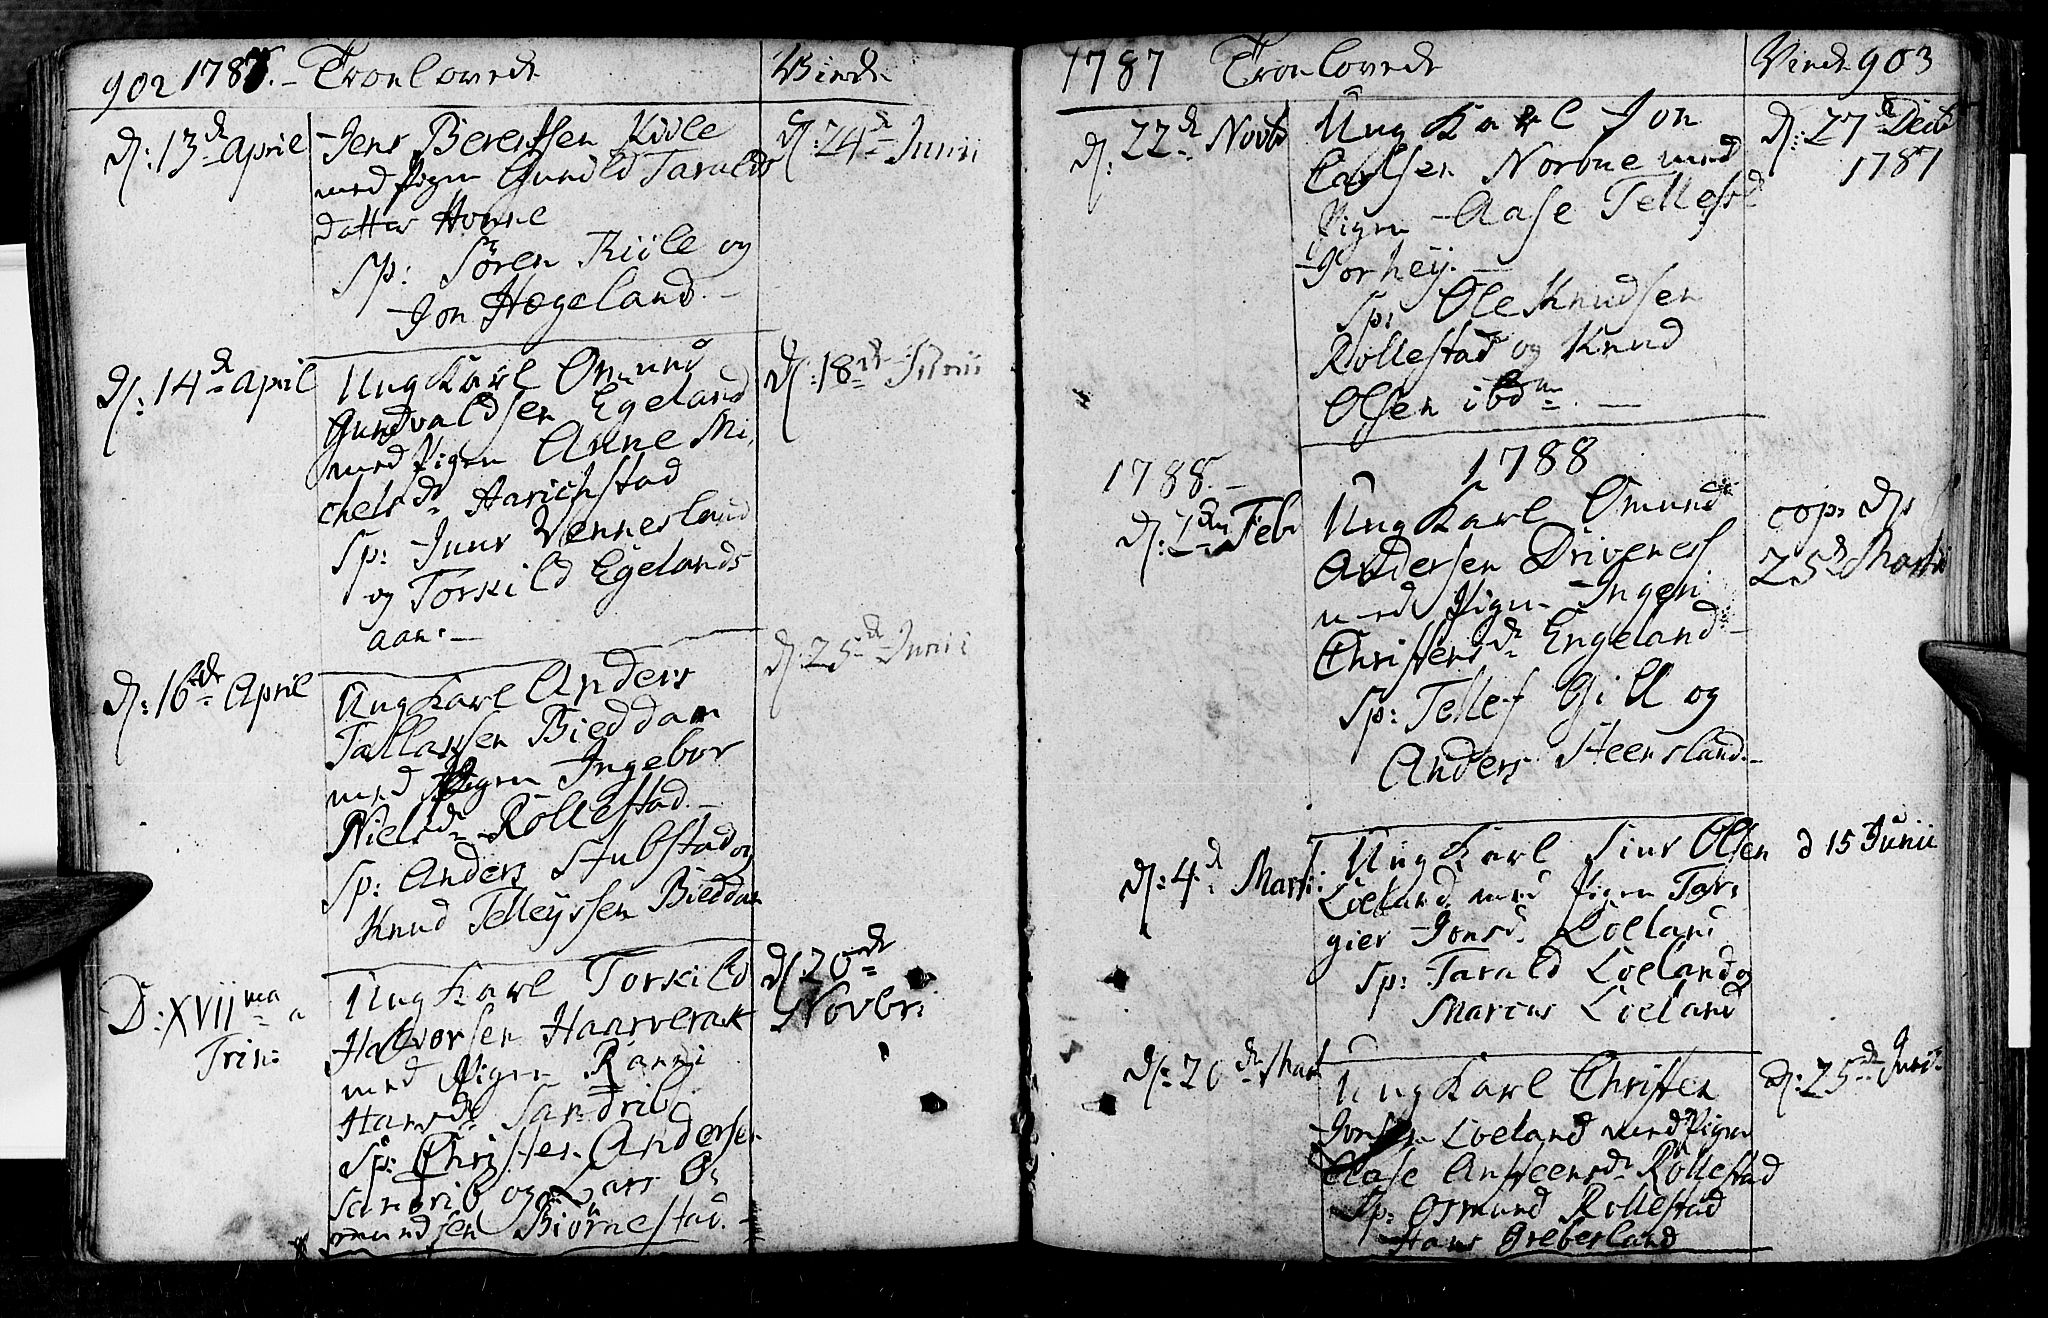 902 1787. - Troelovede
Viede
d: 13de April
Jens Berentsen Kiile
med Pigen Gunild Taralds
datter Honne
Sp: Sören Kiile og
Jon Hægeland. -
d: 24de Junii
d: 14de April
Ung Karl Omund
Gundvaldsen Egeland
med Pigen Anne Mi
chelsdr Harichstad
Sp: Juur Vennersland
og Torkild Egelands
aan. -
d: 18de Junii
d: 16de April
Ung Karl Anders
Tallaksen Bieddam
med Pigen Ingebor
Nielsdr Röllestad. -
Sp: Anders Stubstad og
Knud Telleyssen Bieddam
d: 25de Junii
D: XVIIma a
Trin:
Ung Karl Torkild
Halvorsen Haarverak
med Pigen Ranni
Hansdr Sandrib
Sp: Christen Andersen
Sandrib og Lars O
mundsen Biörnestad. -
d. 20de
Novbr:
1787 Troelovede
Viede 903
d: 22de Novb
Ung Karl Jon
Carlsen Norbue med
Pigen Aase Tellefsd
Jorhey. -
Sp: Ole Knudsen
Röllestad og Knud
Olsen ibdm. -
d: 27de Decb
1787
1788
1788. -
d: 1den Febr
Ung Karl Omund
Andersen Drivenes
med Pigen Ingeri
Christensdr Engeland -
Sp: Tellef Gill og
Anders Steensland. -
cop. d.
25de Martii
d: 4de Martii
Ung Karl Siur Olsen
Loeland med Pigen Tor
gier Jonsd. Loeland
Sp: Tarald Loeland og
Marcus Loeland
d 15 Junii
d: 20de Mart
Ung Karl Christen
Jonsen Loeland med Pigen
Aase Ansteensdr Röllestad
Sp: Osmund Rollestad
Hans Greberland
d: 25de Junii